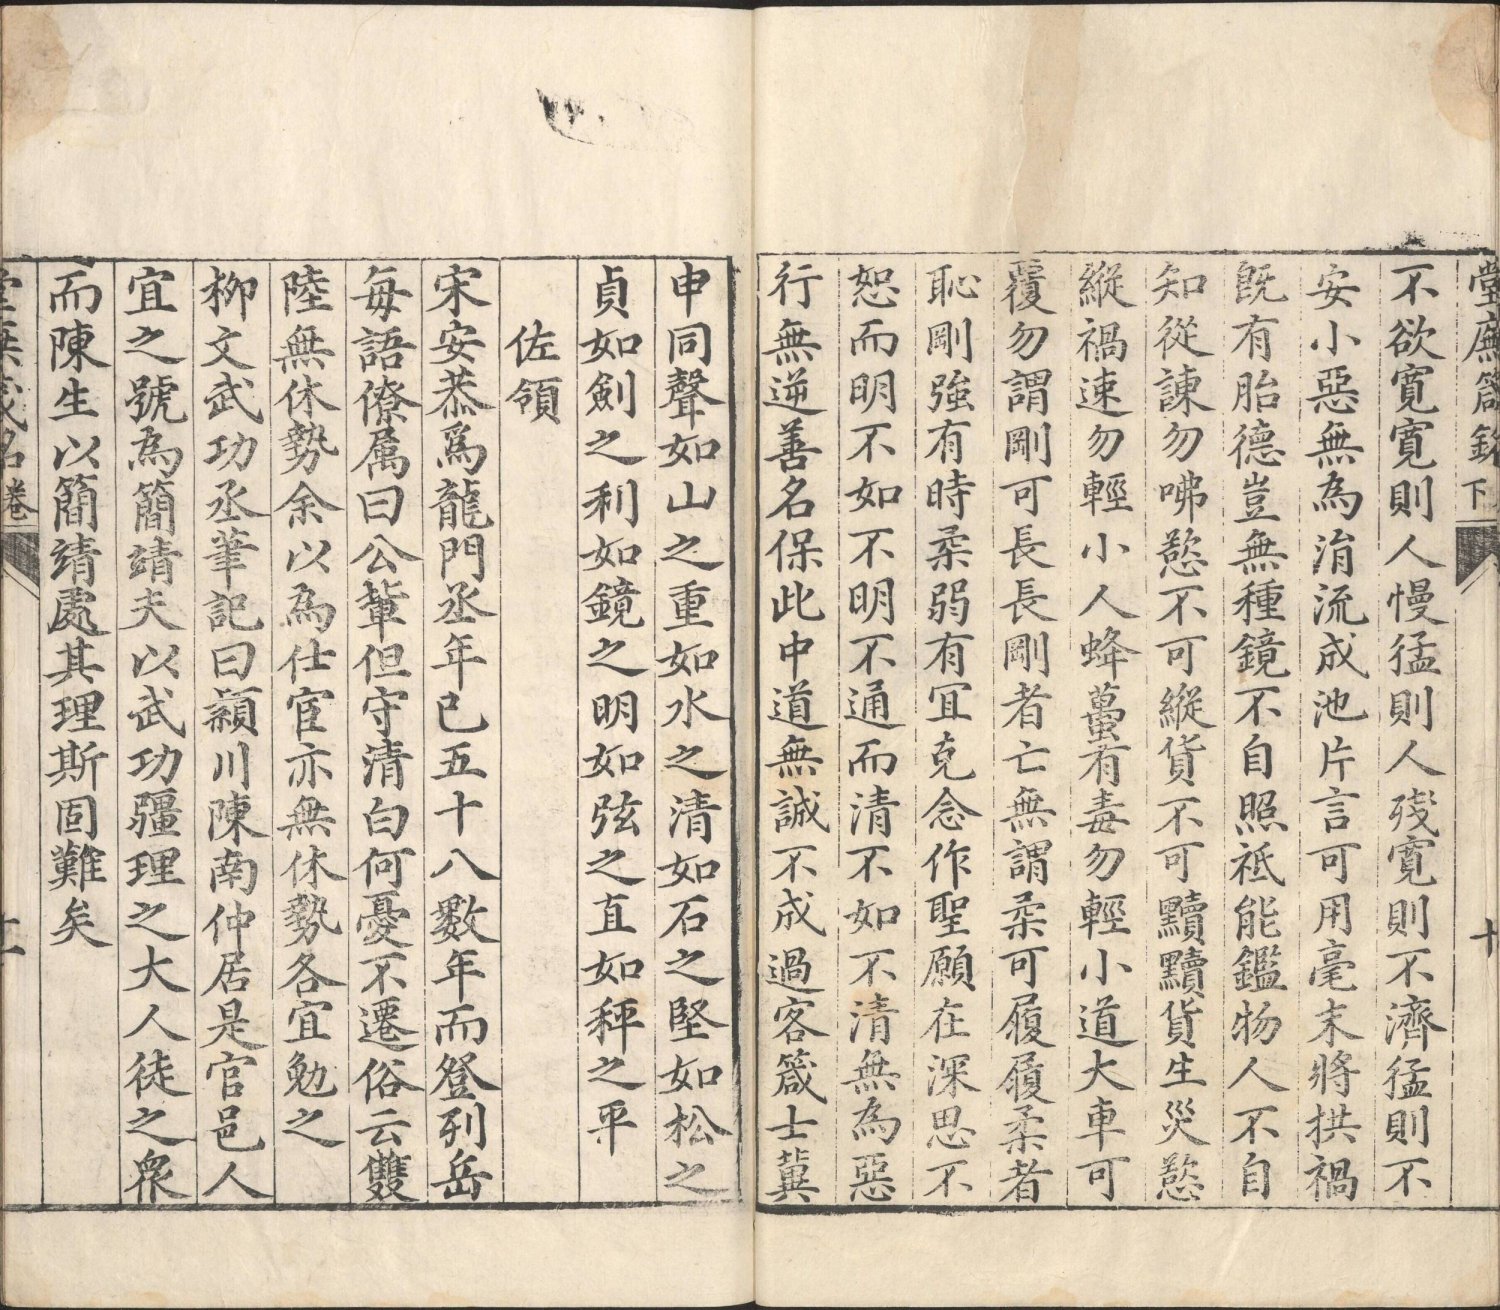 堂廡箴銘 下 十
不欲寛寛則人慢猛則人殘寛則不濟猛則不
安小惡無為涓流成池片言可用毫末將拱禍
既有胎德豈無種鏡不自照祗能鑑物人不自
知從諫勿咈慾不可縱貨不可黷黷貨生災慾
縱禍速勿輕小人蜂蠆有毒勿輕小道大車可
覆勿謂剛可長長剛者亡無謂柔可履履柔者
恥剛強有時柔弱有冝克念作聖願在深思不
恕而明不如不明不通而清不如不清無為惡
行無逆善名保此中道無誠不成過客箴士冀
申同聲如山之重如水之清如石之堅如松之
貞如劍之利如鏡之明如弦之直如秤之平
佐領
宋安恭爲龍門丞年已五十八數年而登列岳
每語僚属曰公輩但守清白何憂不遷俗云雙
陸無休勢余以為仕宦亦無休勢各宜勉之
柳文武功丞筆記曰潁川陳南仲居是官邑人
宜之號為簡靖夫以武功疆理之大人徒之衆
而陳生以簡靖處其理斯固難矣
卷